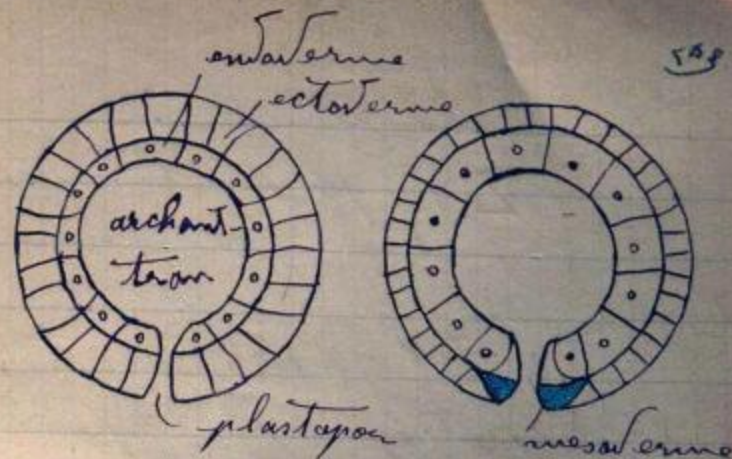 endoderme
ectoderme
archent-
teron
plastopor
mesoderme